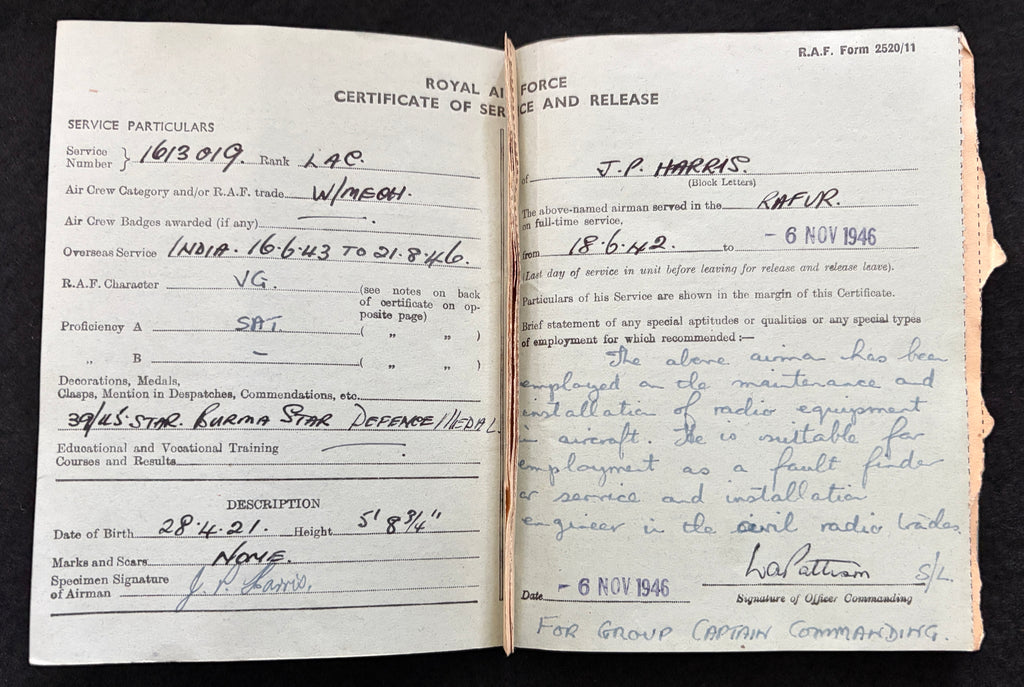 R.A.F. Form 2520/11
ROYAL AI FORCE
CERTIFICATE OF SER CE AND RELEASE
SERVICE PARTICULARS
Service Number } 1613019. Rank LAC.
Air Crew Category and/or R.A.F. trade W/MECH.
Air Crew Badges awarded (if any) —.
Overseas Service INDIA - 16.6.43 TO 21.8.46.
R.A.F. Character VG. (see notes on back
of certificate on op-
posite page)
Proficiency A SAT. ( „ „ )
„ B – ( „ „ )
Decorations, Medals,
Clasps, Mention in Despatches, Commendations, etc.
39/45 STAR. BURMA STAR DEFENCE MEDAL
Educational and Vocational Training
Courses and Results —.
DESCRIPTION
Date of Birth 28.4.21. Height 5' 8 3/4"
Marks and Scars NONE.
Specimen Signature
of Airman J. P. Harris.
of J.P. HARRIS.
(Block Letters)
The above-named airman served in the RAFVR.
on full-time service,
from 18.6.42. to - 6 NOV 1946
(Last day of service in unit before leaving for release and release leave).
Particulars of his Service are shown in the margin of this Certificate.
Brief statement of any special aptitudes or qualities or any special types
of employment for which recommended :—
The above airma has been
employed on the maintenance and
installation of radio equipment
in aircraft. He is suitable for
employment as a fault finder
or service and installation
engineer in the civil radio trades.
S/L.
Date - 6 NOV 1946 Signature of Officer Commanding
FOR GROUP CAPTAIN COMMANDING.